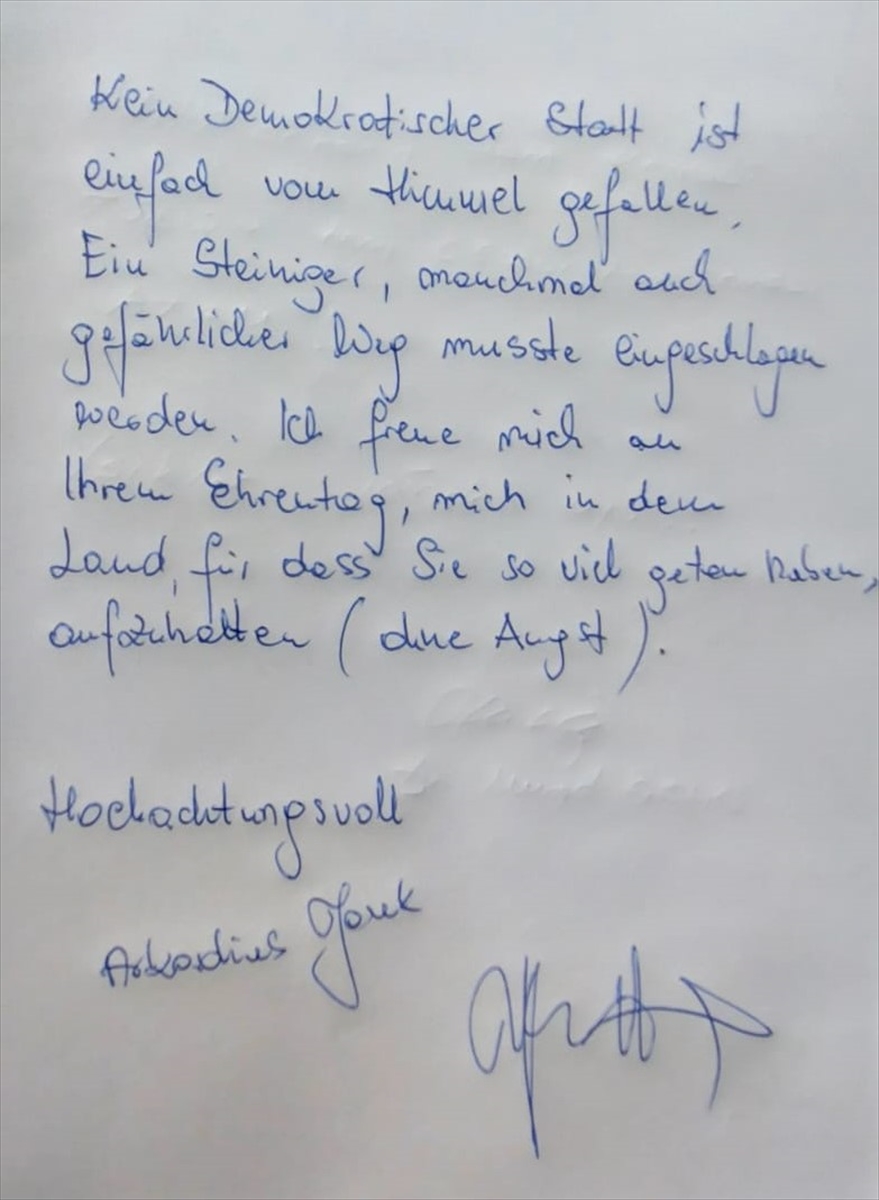 Kein Demokratischer Statt ist
einfach vom Himmel gefallen.
Ein Steiniger, manchmal auch
gefährlicher Weg musste eingeschlagen
werden. Ich freue mich an
Ihrem Ehrentag, mich in dem
Land, für dass Sie so viel getan haben,
aufzuhalten (ohne Angst).
Hochachtungsvoll
Arkadius